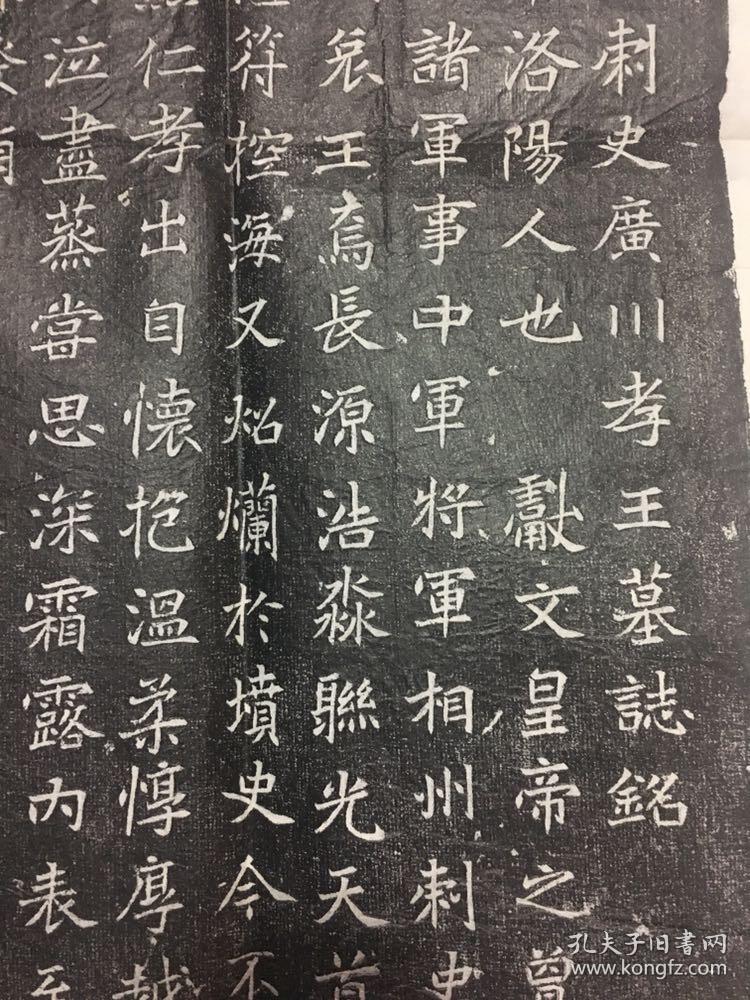 刺史廣川孝王墓誌銘
洛陽人也 獻文皇帝之曾
諸軍事中軍將軍相州刺史
哀王焉長源浩淼聯光天首
符控海又炤爛於墳史今不
仁孝出自懷抱溫柔惇厚越
泣盡蒸嘗思深霜露內表至
孔夫子旧書网
www.kongfz.com